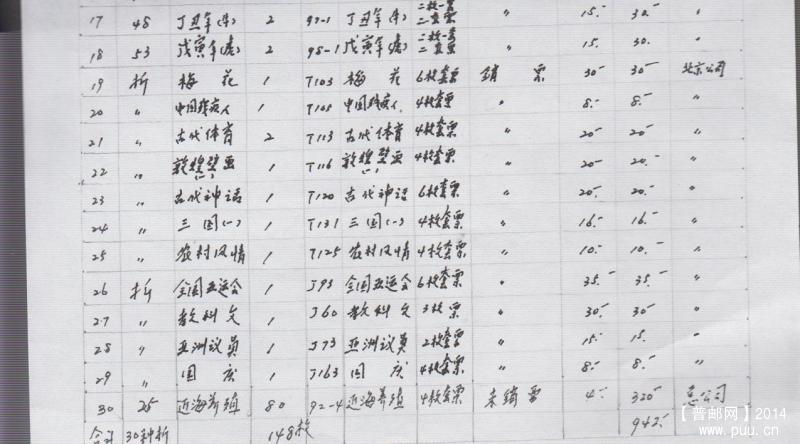 17 48 丁丑年(牛) 2 97-1 丁丑年(牛) 二枚一套 二套票 〃 15.- 30.-
18 53 戊寅年(虎) 2 98-1 戊寅年(虎) 二枚一套 二套票 〃 15. 30. 〃
19 折 梅花 1 T103 梅花 6枚套票 銷票 30.- 30.- 北京公司
20 〃 中国残疾人 1 T105 中国残疾人 4枚套票 〃 8.- 8.- 〃
21 〃 古代体育 2 T113 古代体育 4枚套票 〃 20.- 20.- 〃
22 〃 敦煌壁画(一) 1 T116 敦煌壁画(一) 4枚套票 〃 20.- 20.- 〃
23 〃 古代神话 1 T120 古代神话 6枚套票 〃 20.- 20.- 〃
24 〃 三国(一) 1 T131 三国(一) 4枚套票 〃 16.- 16.- 〃
25 〃 农村风情 1 T125 农村风情 4枚套票 〃 10.- 10.- 〃
26 折 全国五运会 1 J93 全国五运会 6枚套票 〃 35.- 35.- 〃
27 〃 教科文 1 J60 教科文 3枚票 〃 30.- 30.- 〃
28 〃 亚洲议员 1 J73 亚洲议员 2枚套票 〃 15.- 15. 〃
29 〃 国庆 1 J163 国庆 4枚套票 〃 8.- 8.- 〃
30 25 近海养殖 80 92-4 近海养殖 4枚套票 未銷票 4.- 320.- 总公司
合计 30种折 148枚 942.-
【普邮网】2014
www.puu.cn